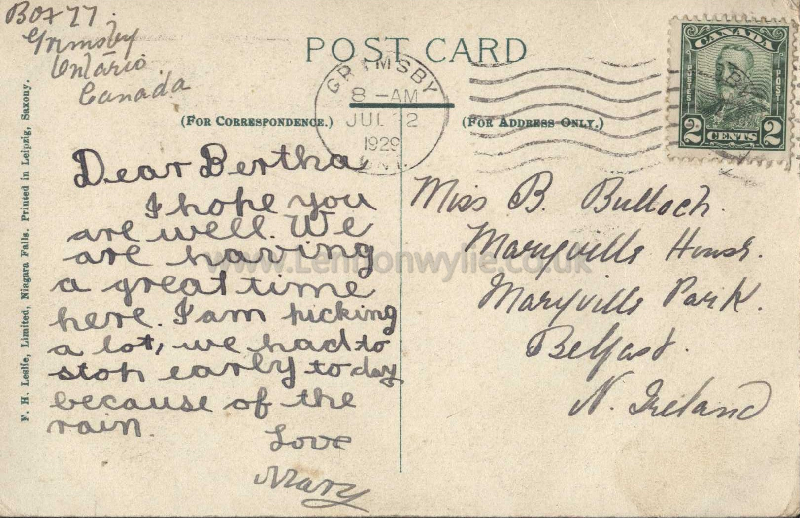 Box 77.
Grimsby
Ontario
Canada
POST CARD
(FOR CORRESPONDENCE.)
(FOR ADDRESS ONLY.)
GRIMSBY
8-AM
JUL 2
1929
ONT.
CANADA
POSTES
POSTAGE
2 CENTS 2
Dear Bertha
I hope you
are well. We
are having
a great time
here. I am picking
a lot, we had to
stop early to day
because of the
rain.
Love
Mary
Miss B. Bulloch.
Maryville House.
Maryville Park.
Belfast.
N. Ireland
F. H. Leslie, Limited, Niagara Falls. Printed in Leipzig, Saxony.
www.Lennonwylie.co.uk